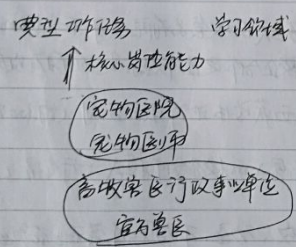 典型工作任务 学习领域
核心岗位能力
宠物医院
宠物医师
畜牧兽医行政事业单位
官方兽医